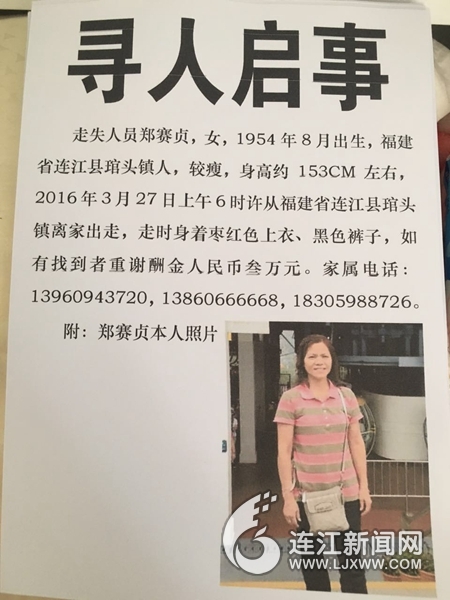 寻人启事
走失人员郑赛贞，女，1954年8月出生，福建
省连江县琯头镇人，较瘦，身高约 153CM 左右，
2016年3月27日上午6时许从福建省连江县琯头
镇离家出走，走时身着枣红色上衣、黑色裤子，如
有找到者重谢酬金人民币叁万元。家属电话：
13960943720，13860666668，18305988726。
附：郑赛贞本人照片
连江新闻网
WWW.LJXWW.COM